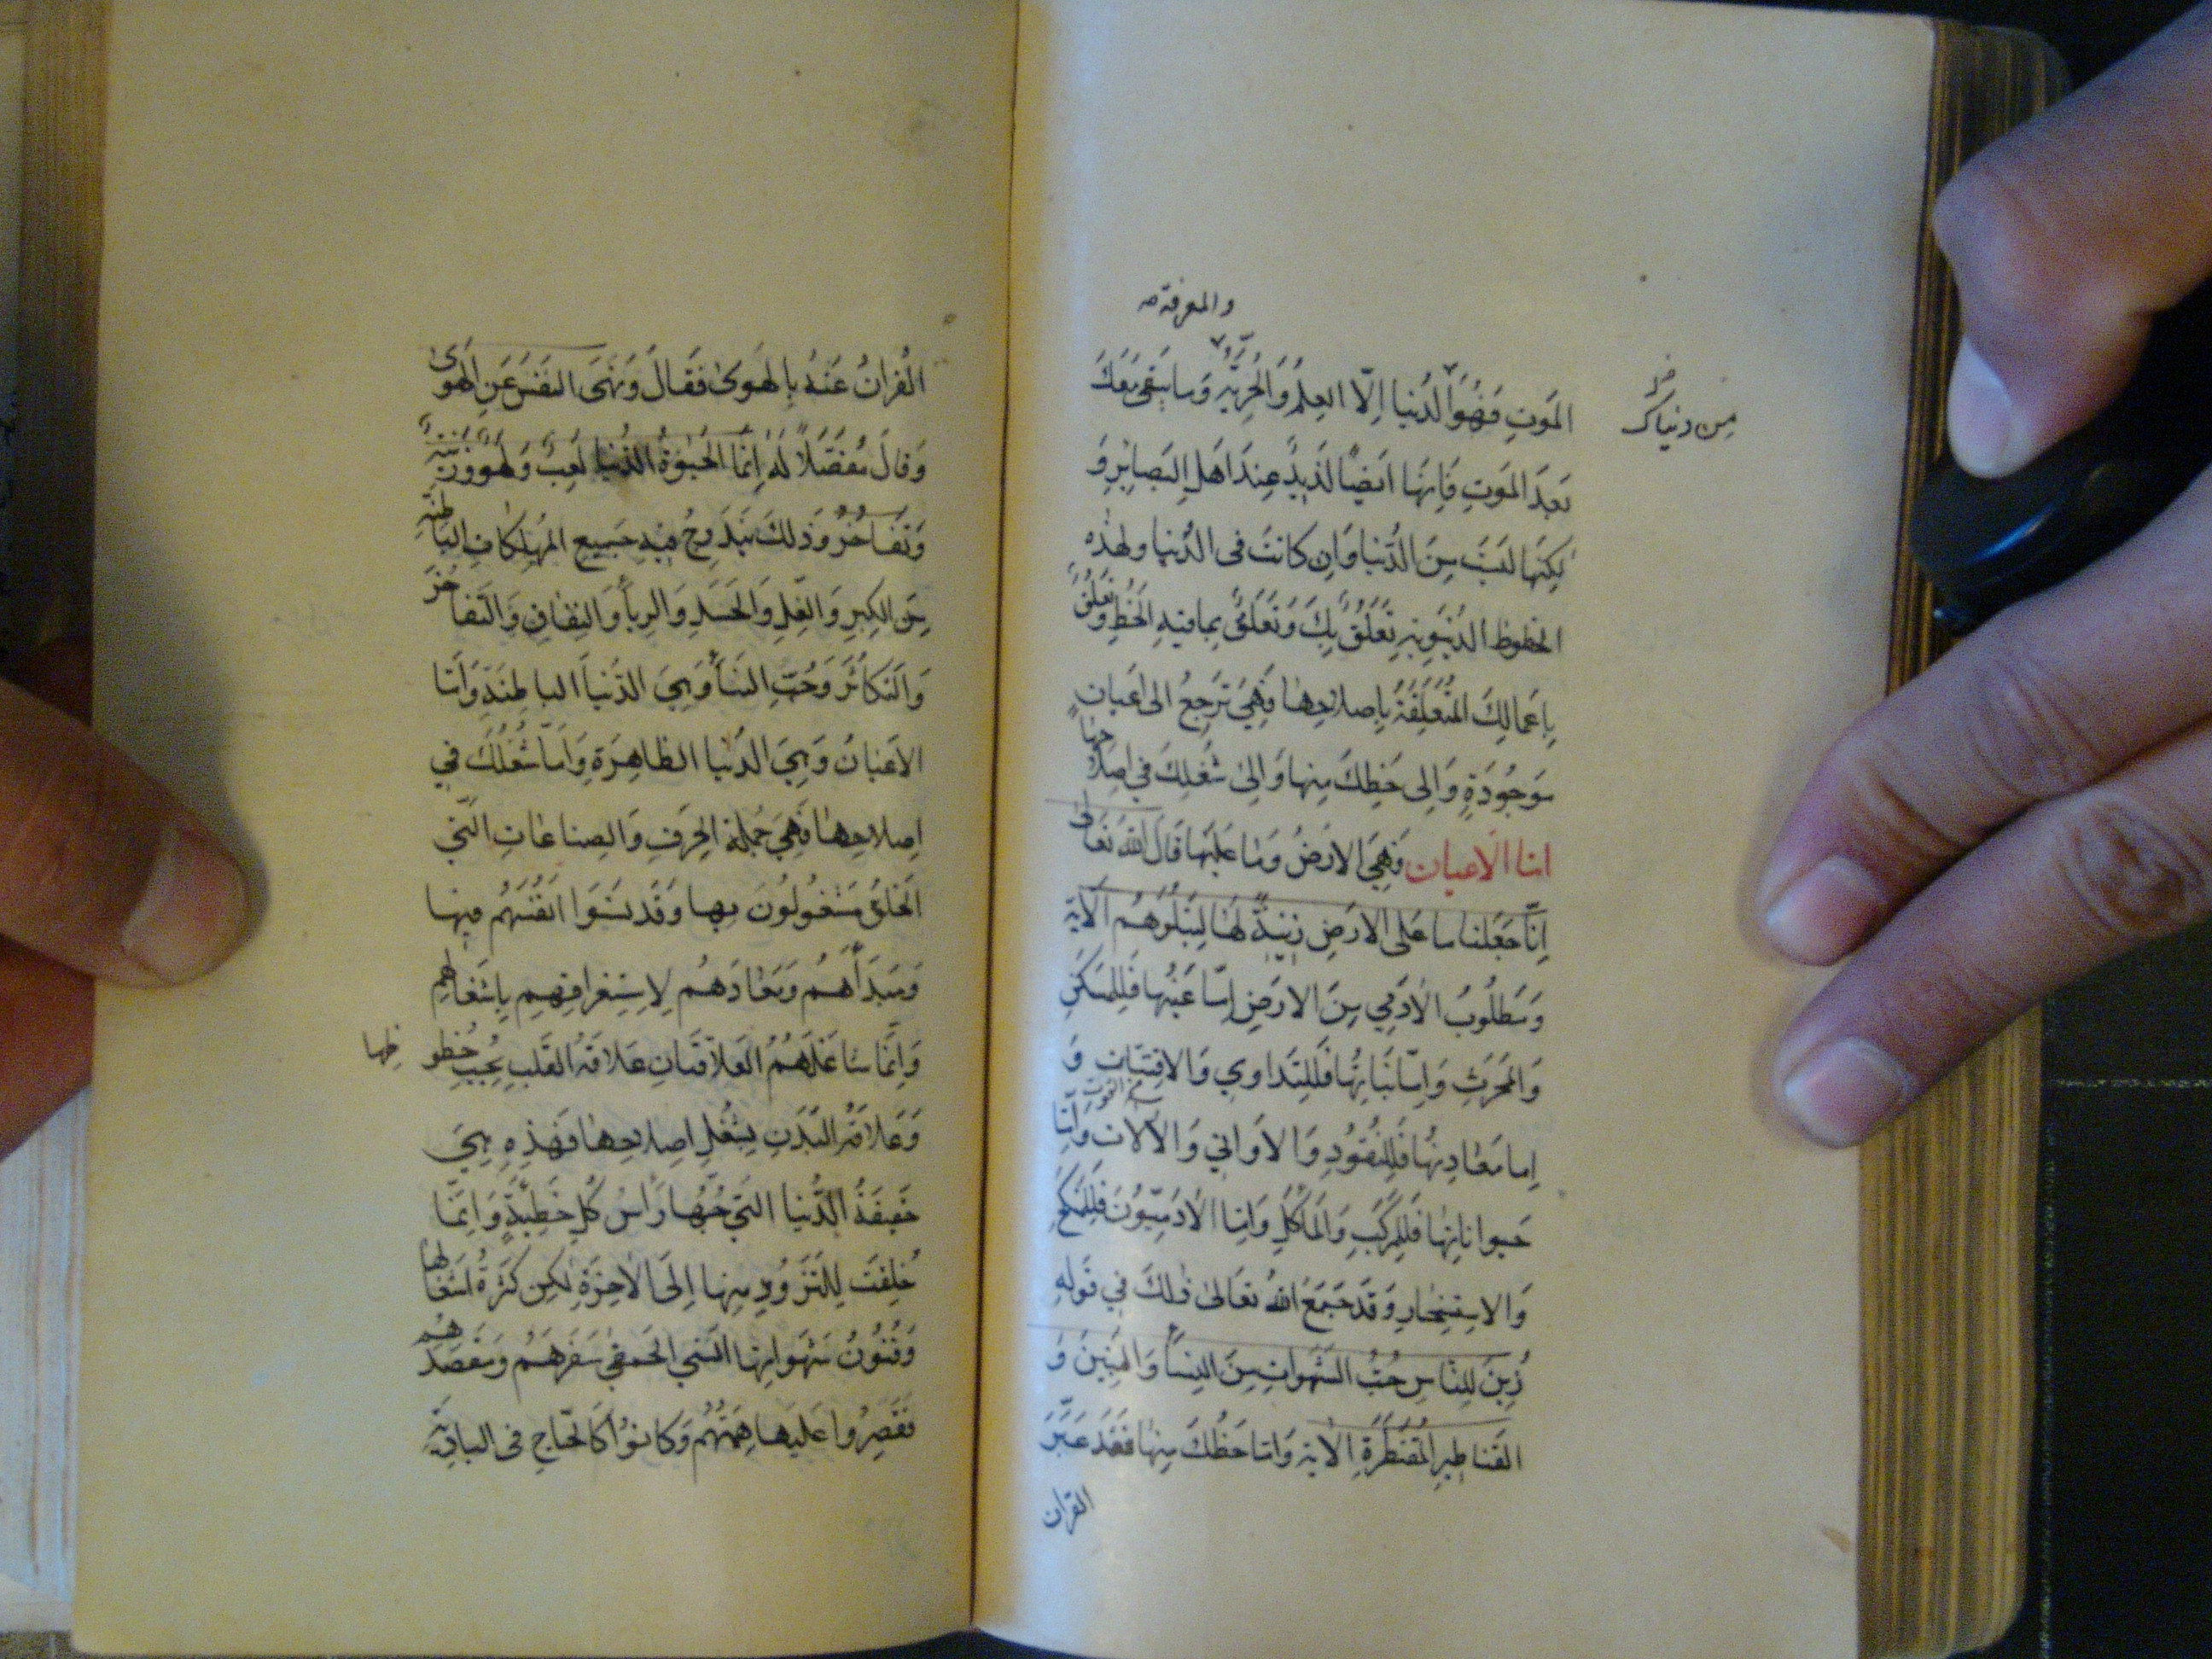 والمعرفة صح
من دنياك
الموت فهو الدنيا الا العلم والحرية وما يبقى معك
بعد الموت فانها ايضا لذيذ عند اهل البصاير و
لكنها ليست من الدنيا وان كانت فى الدنيا ولهذه
الحظوظ الدنيوية تعلق بك وتعلق بما فيه الحظ وتعلق
باعمالك المتعلقة باصلاحها فهي ترجع الى اعيان
موجودة والى حظك منها والى شغلك في اصلاحها
اما الاعيان فهي الارض وما عليها قال الله تعالى
انا جعلنا ما على الارض زينة لها لنبلوهم الاية
ومطلوب الادمي من الارض اما عينها فللمسكن
والمحرث واما نباتها فللتداوي والاقتيات و
اما معادنها فللنقود والاواني والالات واما
حيواناتها فللمركب والمأكل واما الادميون فللمنكح
والاستسخار وقد جمع الله تعالى ذلك في قوله
زين للناس حب الشهوات من النساء والبنين و
القناطير المقنطرة الاية واما حظك منها فقد عبر
القران
القران عنه بالهوى فقال ونهى النفس عن الهوى
وقال مفصلا له انما الحيوة الدنيا لعب ولهو وزينة
وتفاخر وذلك يندرج فيه جميع المهلكات الباطنة
من الكبر والغل والحسد والرياء والنفاق والتفاخر
والتكاثر وحب الثناء وهي الدنيا الباطنة واما
الاعيان وهي الدنيا الظاهرة واما شغلك في
اصلاحها فهي جملة الحرف والصناعات التي
الخلق مشغولون بها وقد نسوا انفسهم فيها
ومبدأهم ومعادهم لاستغراقهم باشغالهم
وانما شاغلهم العلاقتان علاقة القلب بحب حظوظها
وعلاقة البدن بشغل اصلاحها فهذه هي
حقيقة الدنيا التي حبها رأس كل خطيئة وانما
خلقت للتزود منها الى الاخرة لكن كثرة اشغالها
وفنون شهواتها انسى الحمقى سفرهم ومقصدهم
فقصروا عليها همتهم وكانوا كالحاج فى البادية